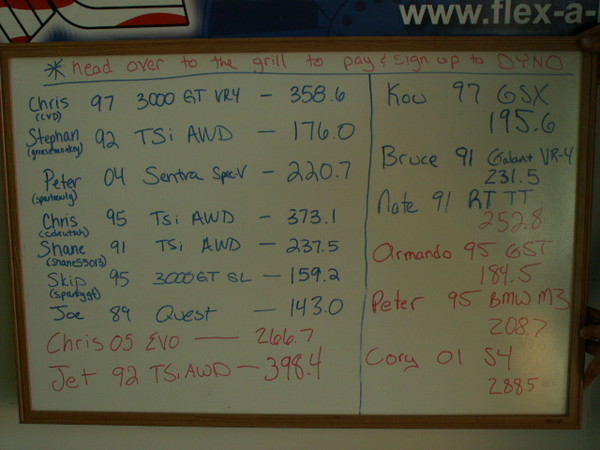 www.flex-a-
* head over to the grill to pay & sign up to DYNO
Chris 97 3000 GT VR4 - 358.6
(CVD)
Stephan 92 TSi AWD - 176.0
Peter 04 Sentra Spec-V - 220.7
Chris 95 TSi AWD - 373.1
Shane 91 TSi AWD - 237.5
(Shane55013)
Skip 95 3000 GT SL - 159.2
(sparky gt)
Joe 89 Quest - 143.0
Chris 05 EVO - 266.7
Jet 92 TSi AWD - 398.4
Kou 97 GSX
195.6
Bruce 91 Galant VR-4
231.5
Nate 91 RT TT
252.8
Armando 95 GST
184.5
Peter 95 BMW M3
208.7
Cory 01 S4
288.5